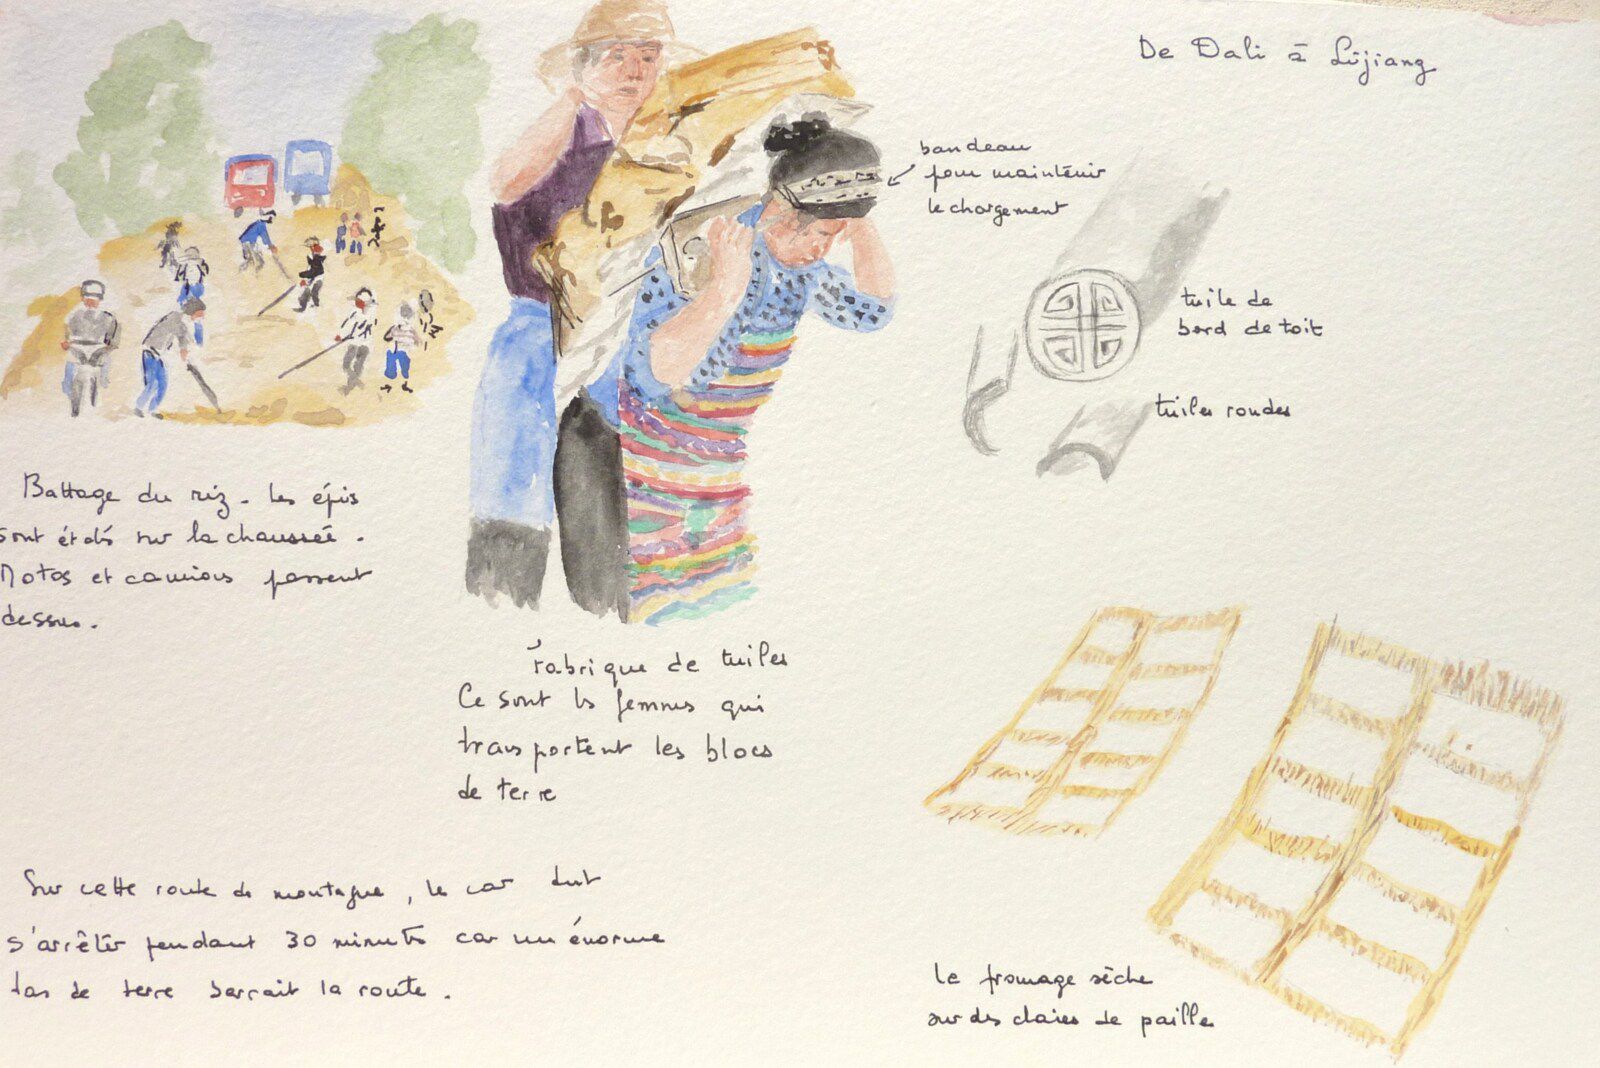 De Dali à Lijiang
bandeau
pour maintenir
le chargement
tuile de
bord de toit
tuiles rondes
Battage du riz. Les épis
sont étalés sur la chaussée.
Motos et camions passent
dessus.
Fabrique de tuiles
Ce sont les femmes qui
transportent les blocs
de terre
Sur cette route de montagne, le car dut
s'arrêter pendant 30 minutes car un énorme
tas de terre barrait la route.
Le fromage sèche
sur des claies de paille